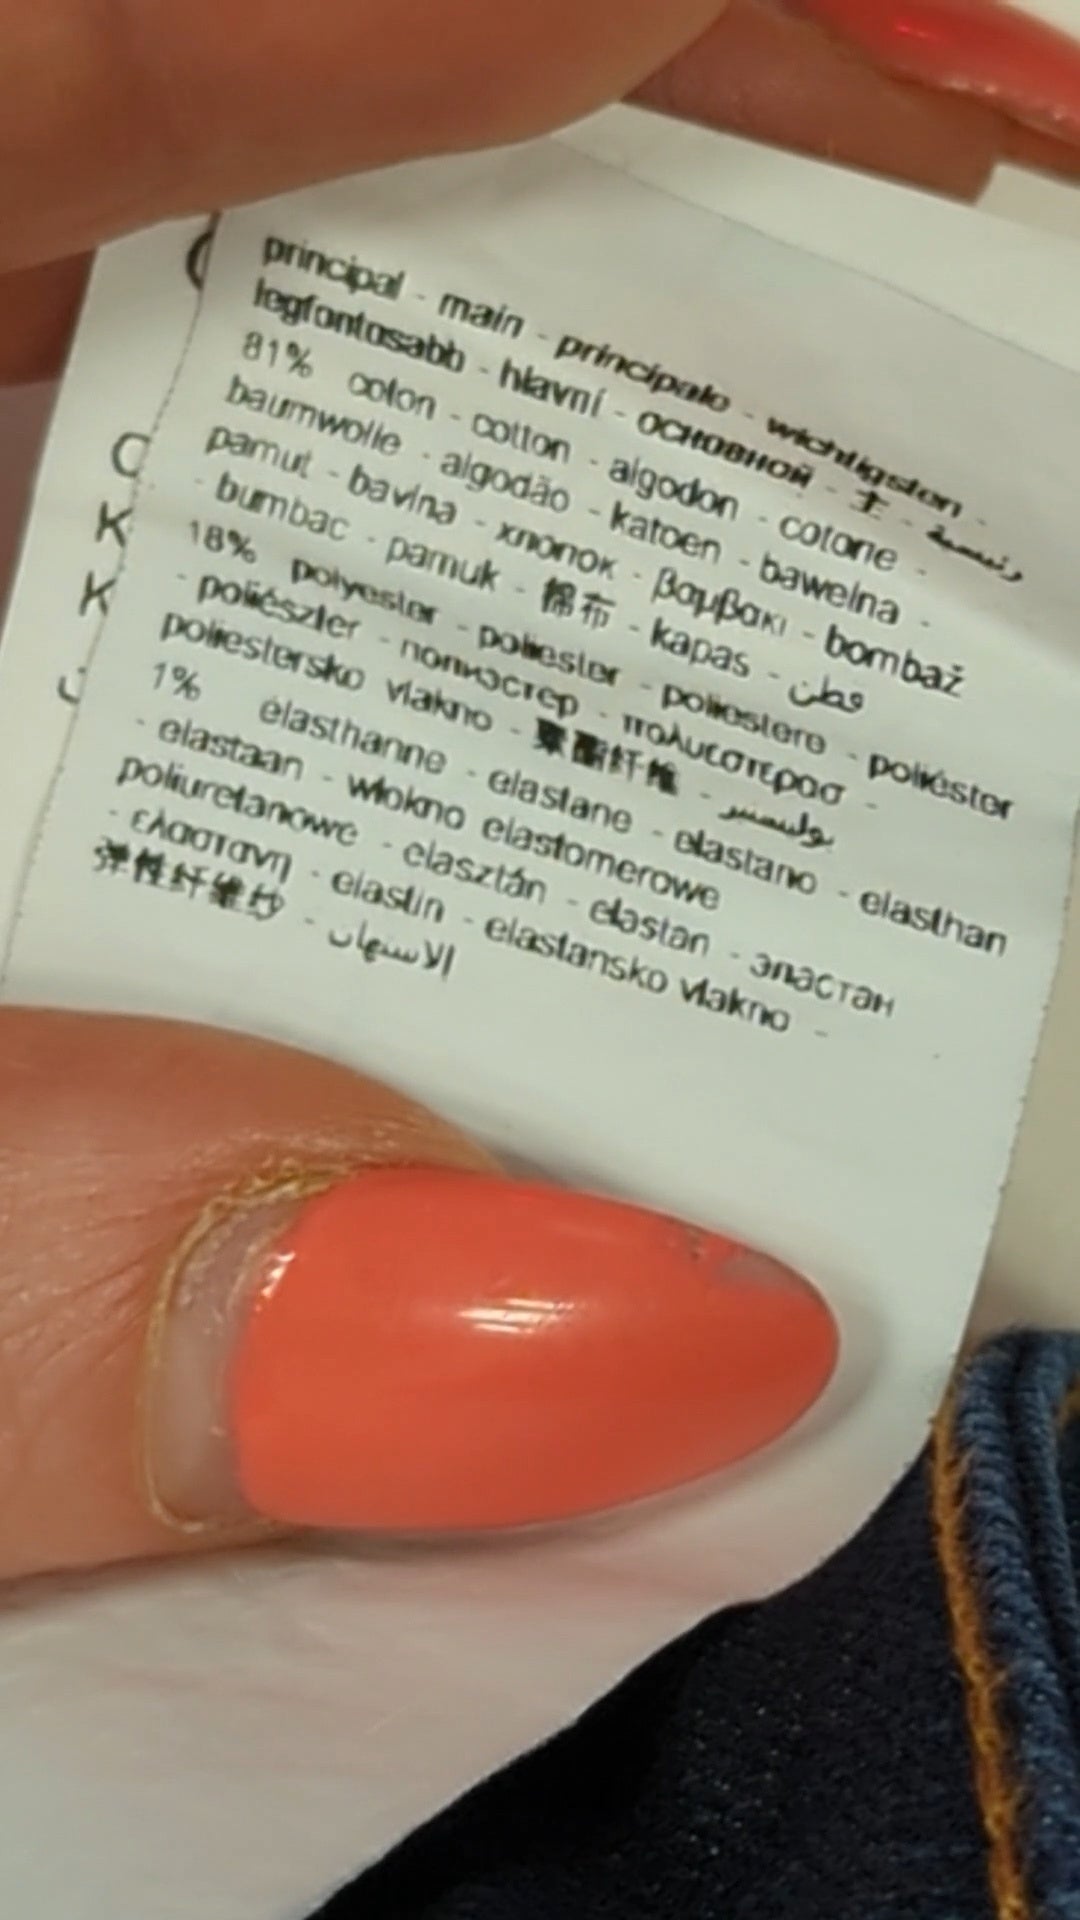 principal - main - principale - wichtigsten -
legfontosabb - hlavní - основной - 主 - رئيسية
81% coton - cotton - algodon - cotone -
baumwolle - algodão - katoen - bawelna -
pamut - bavlna - хлопок - βαμβακι - bombaž
- bumbac - pamuk - 棉布 - kapas - قطن
18% polyester - poliester - poliestere - poliéster
- poliészter - полиэстер - πολυεστερασ -
poliestersko vlakno - 聚酯纤维 - بوليستر
1% élasthanne - elastane - elastano - elasthan
- elastaan - wlokno elastomerowe
poliuretanowe - elasztán - elastan - эластан
- ελαστανη - elastin - elastansko vlakno -
弹性纤维纱 - الاستهان